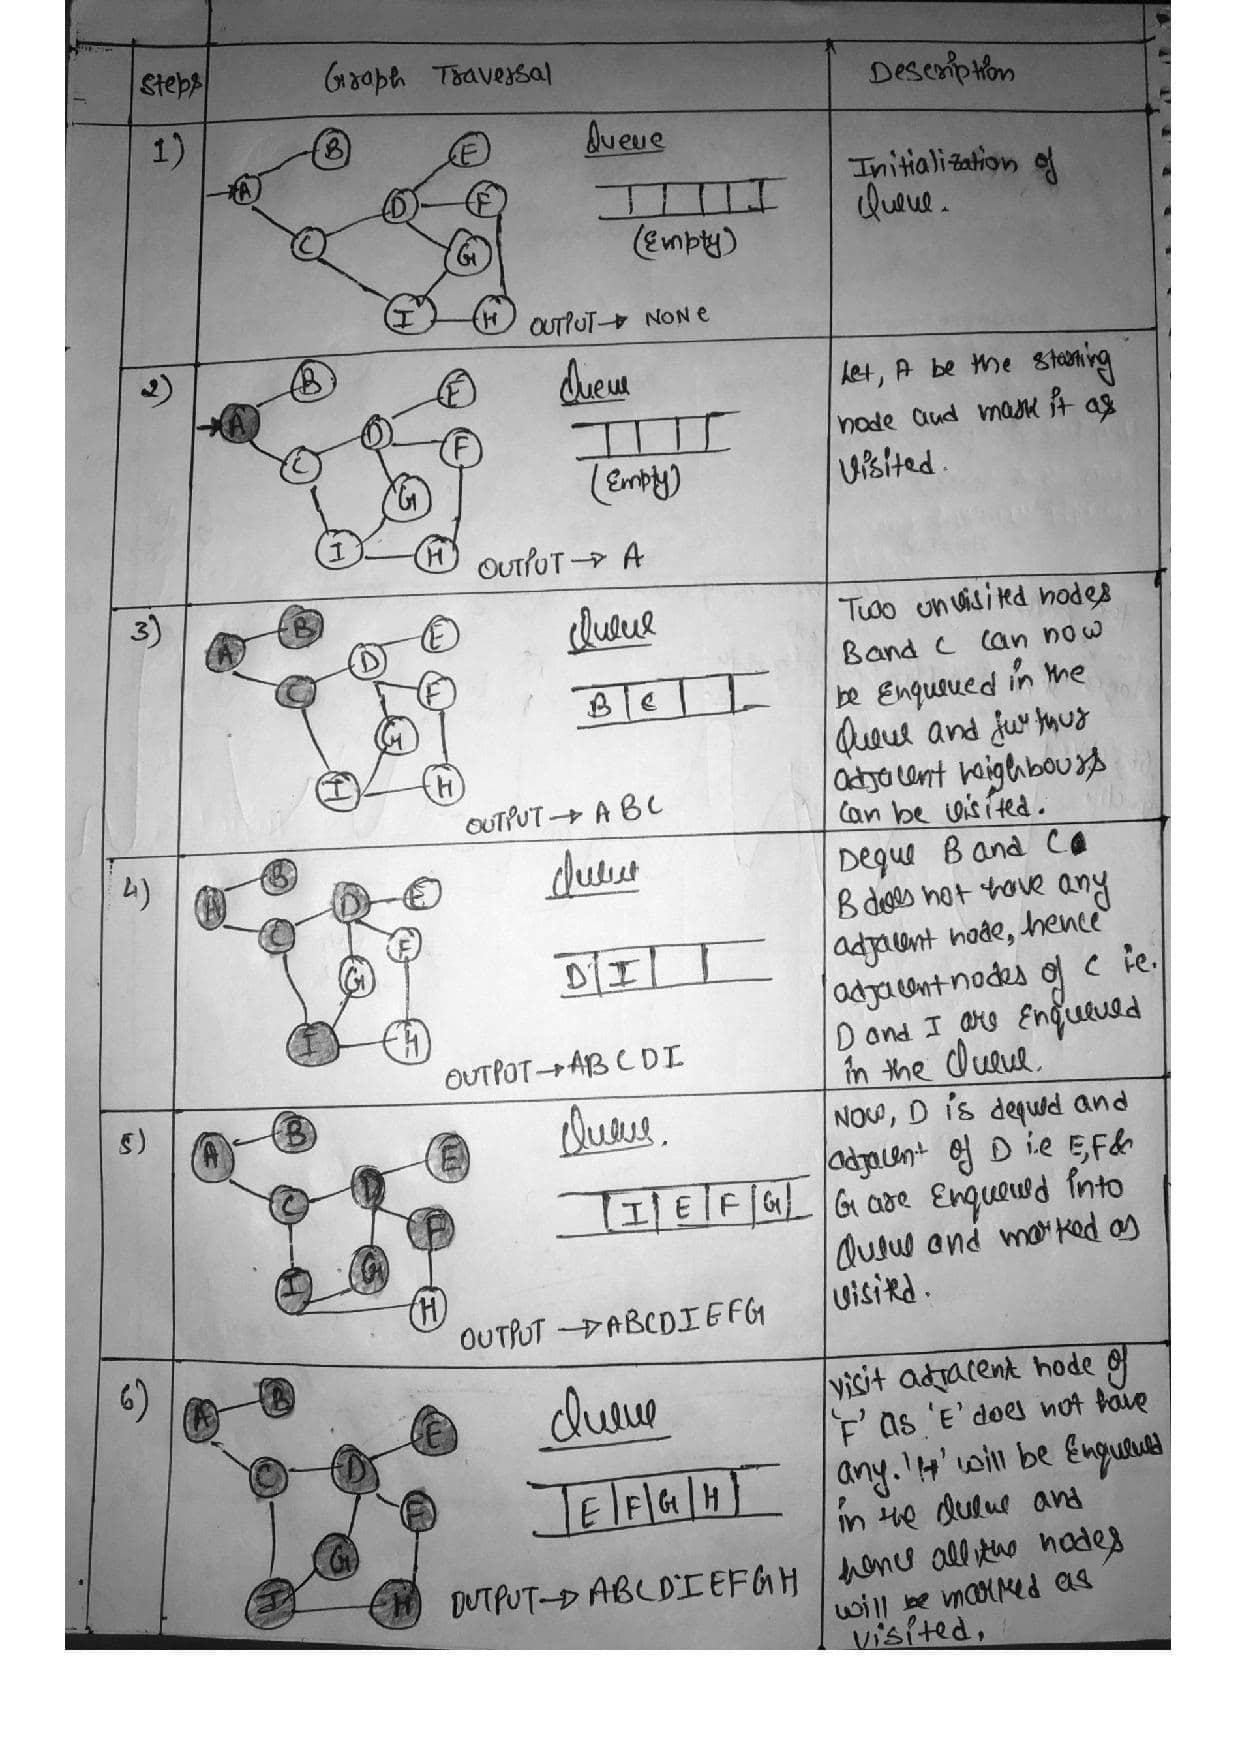 Steps
Graph Traversal
Description
1)
A
B
C
D
E
F
G
I
H
Queue
(Empty)
OUTPUT → NONE
Initialization of
Queue.
2)
A
B
C
D
E
F
G
I
H
Queue
(Empty)
OUTPUT → A
Let, A be the starting
node and mark it as
Visited.
3)
A
B
C
D
E
F
G
I
H
Queue
B C
OUTPUT → A B C
Two unvisited nodes
B and C can now
be Enqueued in the
Queue and furthur
adjacent neighbours
Can be visited.
4)
A
B
C
D
E
F
G
I
H
D I
OUTPOT → AB C D I
Deque B and C
B does not have any
adjacent node, hence
adjacent nodes of C ie.
D and I are Enqueued
in the Queue.
5)
A
B
C
D
E
F
G
I
H
Queue.
I E F G
OUTPUT → ABCDIEFG
Now, D is dequed and
adjacent of D i.e E,F&
G are Enqueued into
Queue and marked as
visited.
6)
A
B
C
D
E
F
G
I
H
Queue
E F G H
OUTPUT → ABCDIEFGH
visit adjacent node of
'F' as 'E' does not have
any. 'H' will be Enqueued
in the Queue and
hence all the nodes
will be marked as
visited,